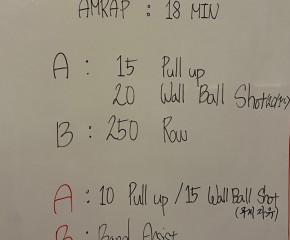 AMRAP : 18 MIN
A : 15 Pull up
20 Wall Ball Shot
B : 250 Row
A : 10 Pull up / 15 Wall Ball Shot
B : Band Assist